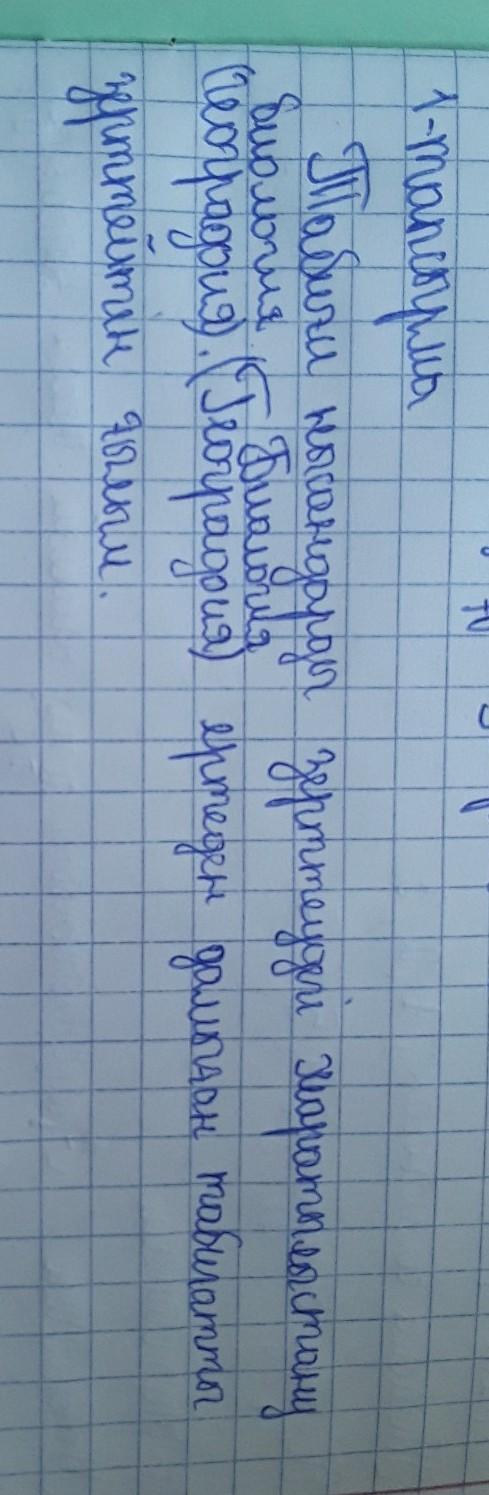 1-тапсырма
Табиғи нысандарды зерттеуді жаратылыстану
биология Биология
(География). (География) ертеден дамыған табиғатты
зерттейтін ғылым.